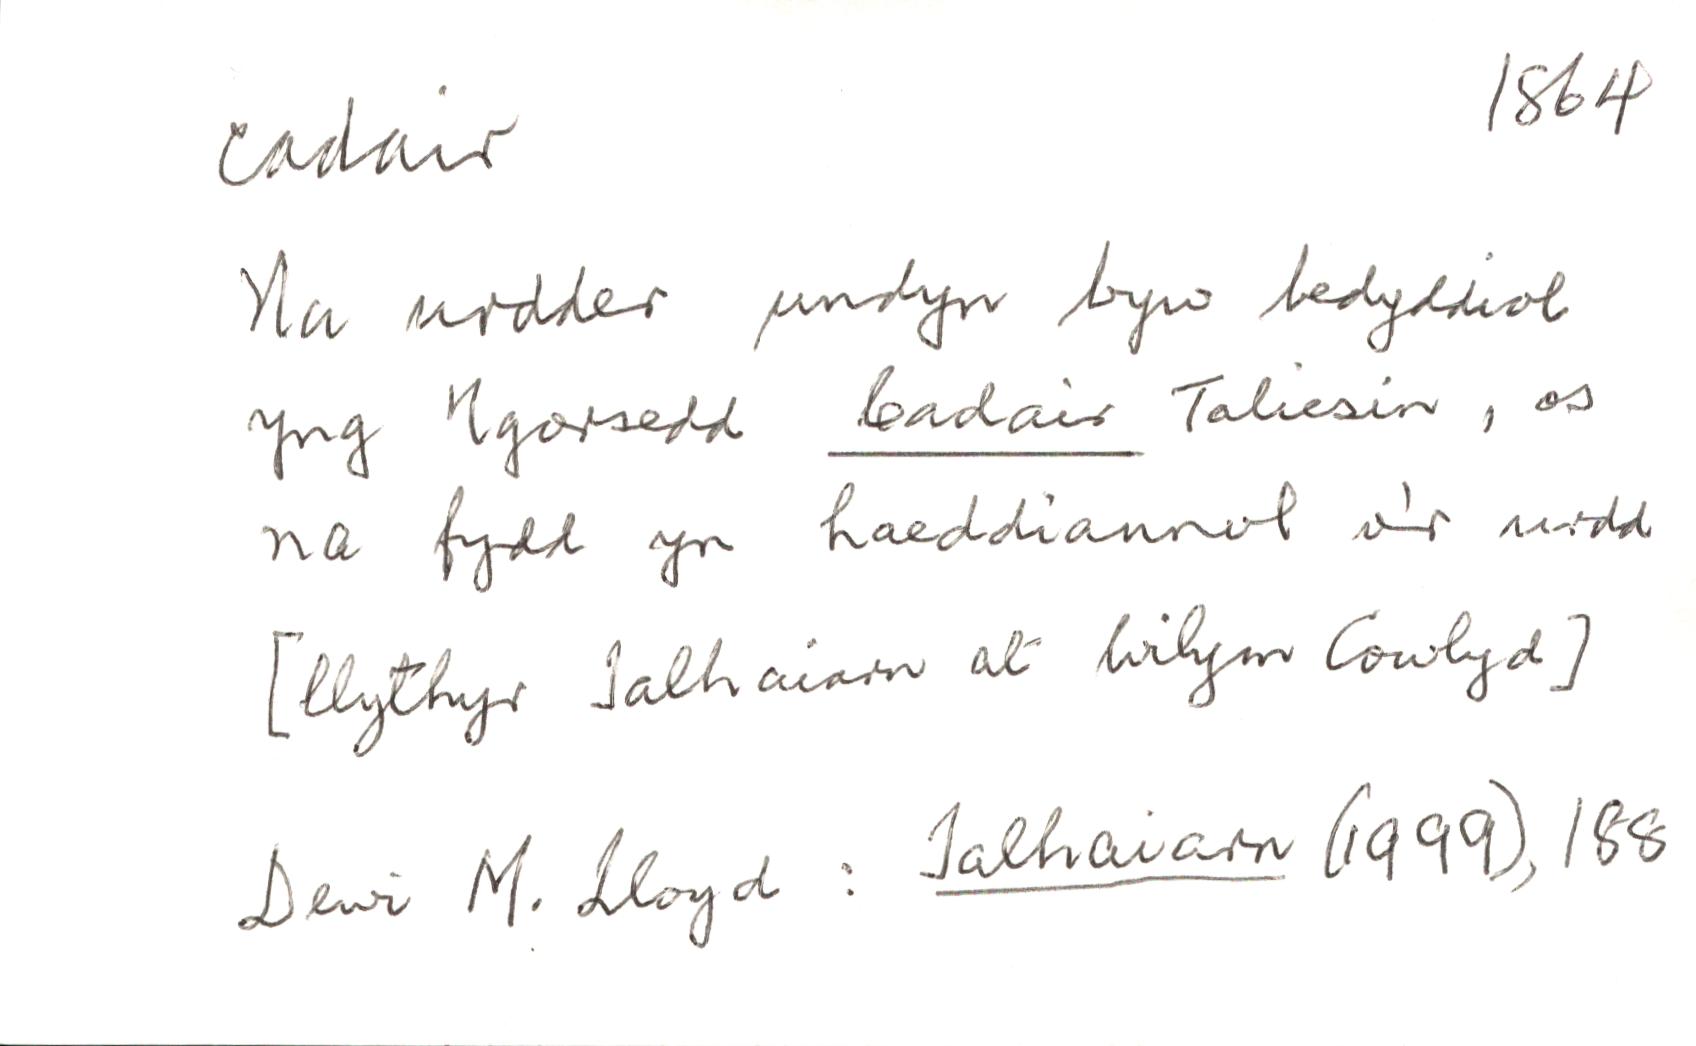 cadair
1864
Na urdder undyn byw bedyddiol
yng Ngorsedd Cadair Taliesin, os
na fydd yn haeddiannol o'r urdd
[llythyr Talhaiarn at Wilym Cowlyd]
Dewi M. Lloyd: Talhaiarn (1999), 188